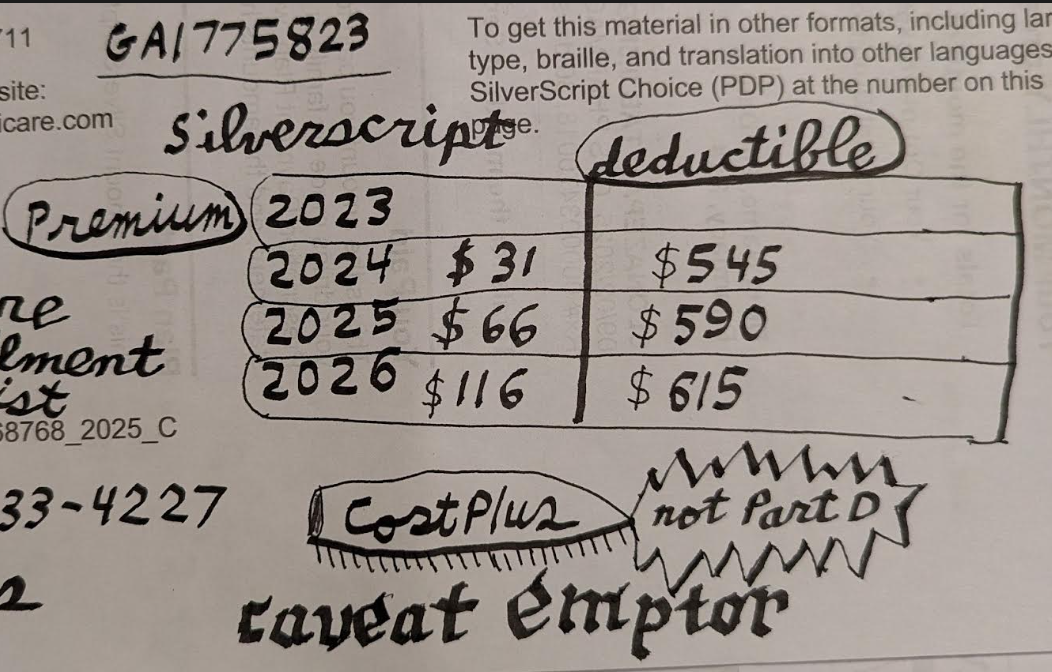 711 GA1775823 To get this material in other formats, including lar
type, braille, and translation into other languages
site: SilverScript Choice (PDP) at the number on this
icare.com Silverscript page.
deductible
Premium 2023
2024 $31 $545
re 2025 $66 $590
lment 2026 $116 $615
ist
68768_2025_C
33-4227 CostPlus not Part D
2 caveat emptor